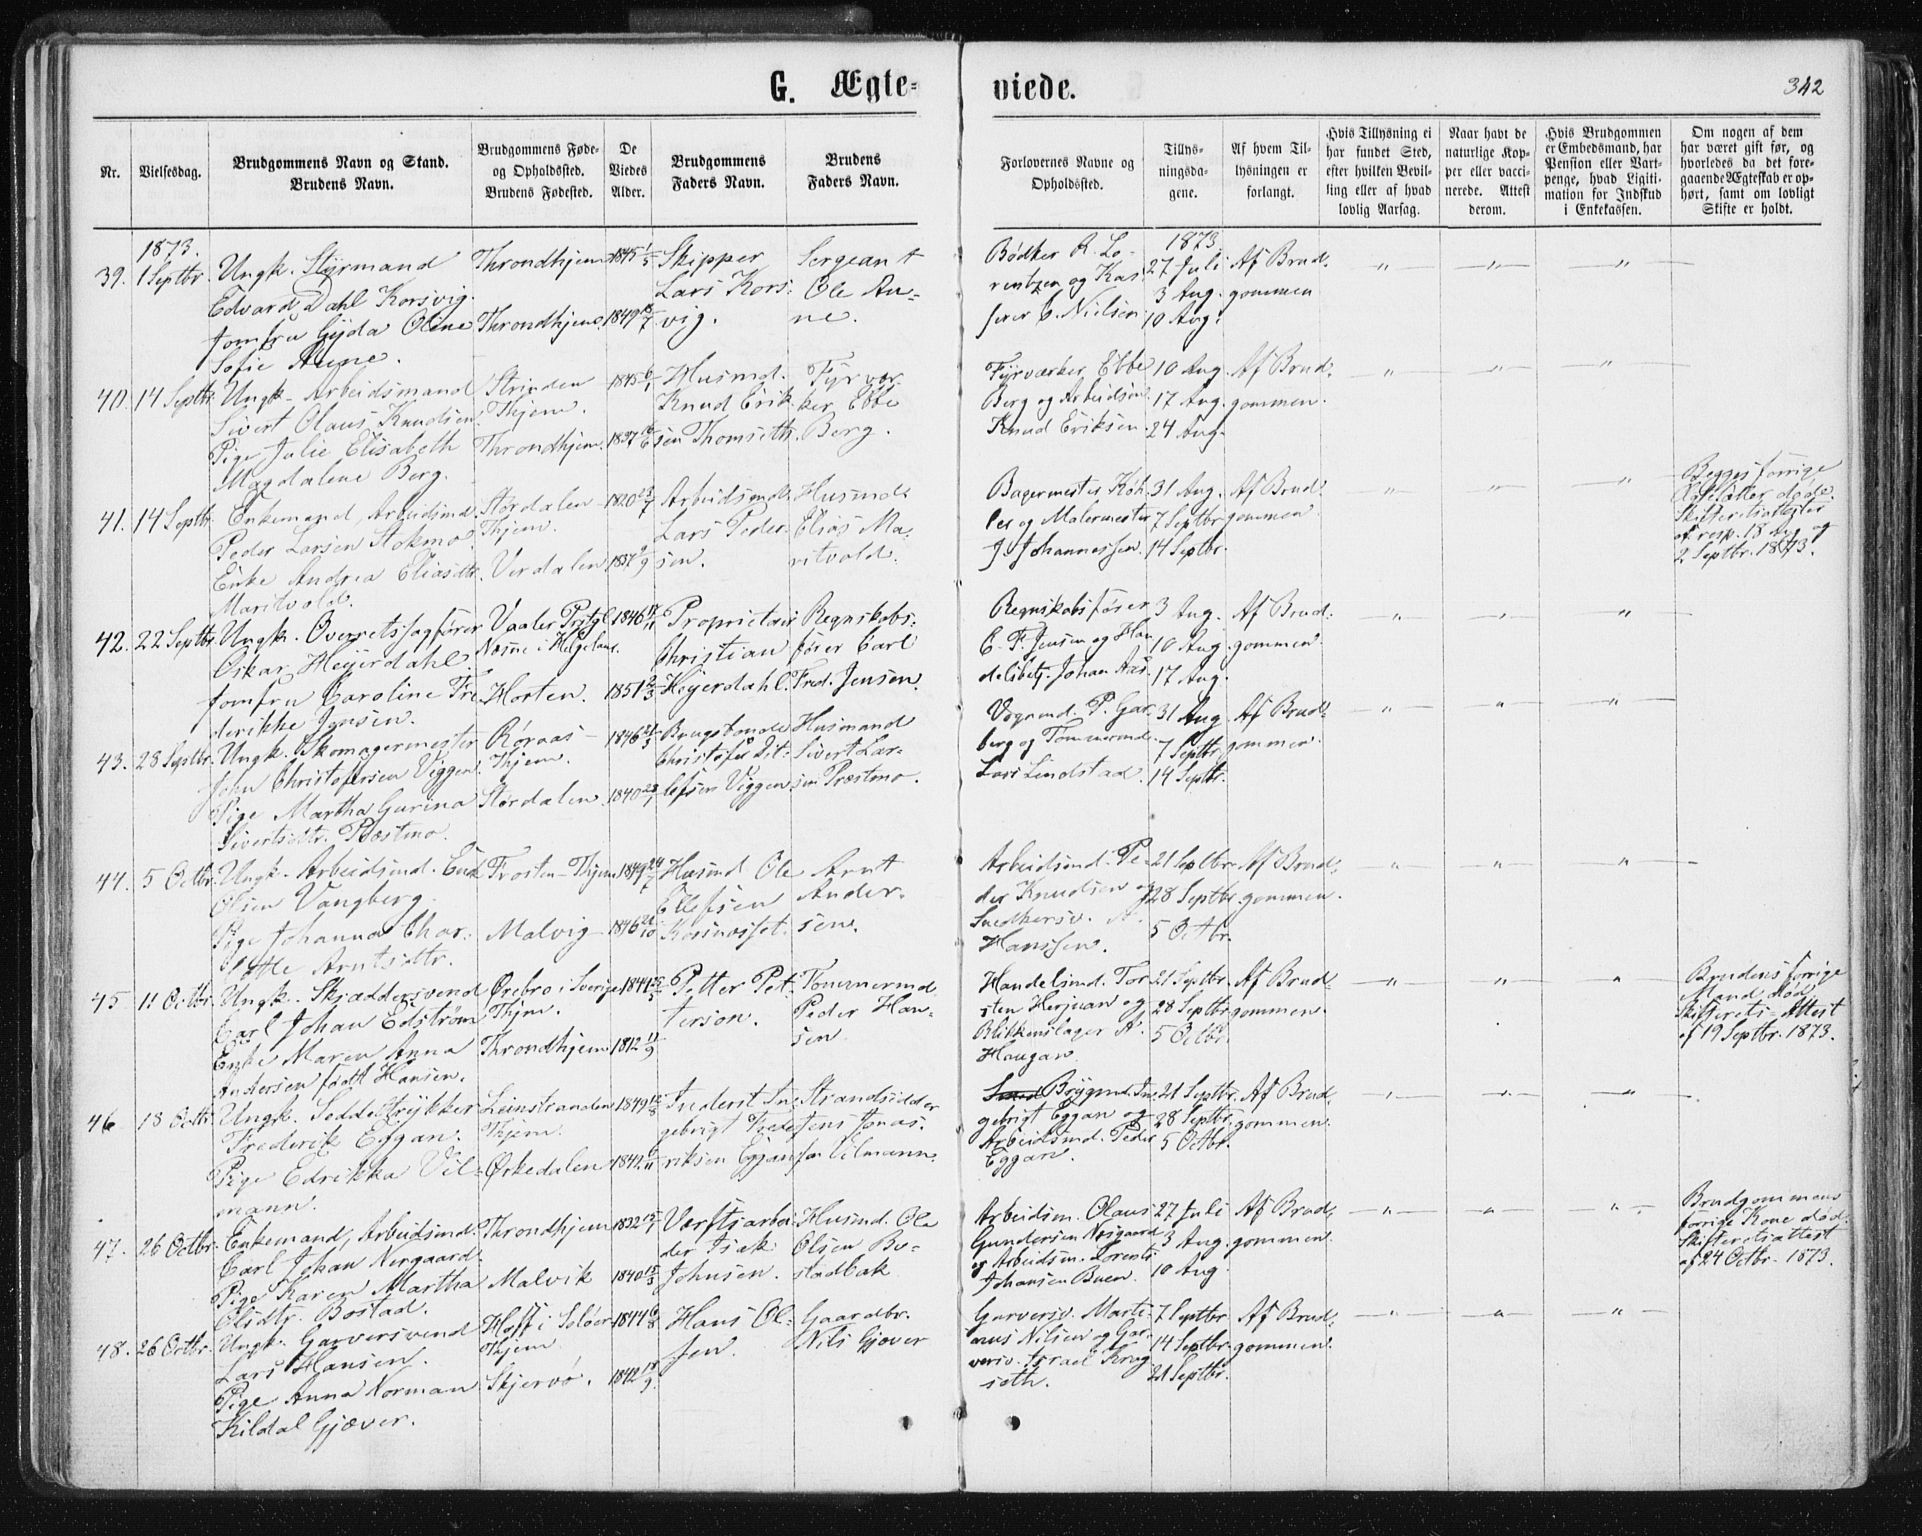 G. Ægte-
viede.
342
Nr.
Vielsesdag.
Brudgommens Navn og Stand.
Brudens Navn.
Brudgommens Føde-
og Opholdsted.
Brudens Fødested.
De
Viedes
Alder.
Brudgommens
Faders Navn.
Brudens
Faders Navn.
Forlovernes Navne og
Opholdsted.
Tillys-
ningsda-
gene.
Af hvem Til-
lysningen er
forlangt.
Hvis Tillysning ei
har fundet Sted,
efter hvilken Bevil-
ling eller af hvad
lovlig Aarsag.
Naar havt de
naturlige Kop-
per eller vacci-
nerede. Attest
derom.
Hvis Brudgommen
er Embedsmand, har
Pension eller Vart-
penge, hvad Ligiti-
mation for Indskud
i Enkekassen.
Om nogen af dem
har været gift før, og
hvorledes da det fore-
gaaende Ægteskab er op-
hørt, samt om lovligt
Skifte er holdt.
1873.
39. 1 Septbr.
Ungk. Styrmand
Edvard Dahl Korsvig.
Jomfru Gyda Oline
Sofie Aune.
Throndhjem
Throndhjem
1845 1/5
1849
Skipper
Lars Kors-
vig.
Sergeant
Ole Au-
ne.
Bødker R. Lo-
rentzen og Kas-
serer C. Nielsen
1873
27 Juli
3 Aug.
10 Aug.
Af Brud-
gommen
40. 14 Septbr.
Ungk. Arbeidsmand
Sivert Olaus Knudsen
Pige Julie Elisabeth
Magdalene Berg.
Strinden
Thjem.
Throndhjem.
1845 6/1
1837
Husmd.
Knud Erik-
sen Thomseth.
Fyrvær-
ker Ebbe
Berg.
Fyrværker Ebbe
Berg og Arbeidsmd.
Knud Eriksen.
10 Aug.
17 Aug.
24 Aug.
Af Brud-
gommen.
41. 14 Septbr.
Enkemand, Arbeidsmd.
Peder Larsen Stokmo
Enke Andrea Eliasdtr.
Maritvold.
Størdalen
Thjem.
Verdalen
1820 23/7
1837 9/9
Arbeidsmd.
Lars Peder-
sen.
Husmd.
Elias Ma-
ritvold.
Bagermester Køh-
ler og Malermester
J. Johannessen.
31 Aug.
7 Septbr.
14 Septbr.
Af Brud-
gommen.
Begges forrige
Ægtefæller døde.
Skifteretsattester
af resp. 18 Aug og
2 Septbr. 1873.
42. 22 Septbr.
Ungk. Overretssagfører
Oskar Heyerdahl.
Jomfru Caroline Fre-
derikke Jensen.
Vaaler Prstgl.
Næsne i Helgeland.
Horten.
1846 17/11
1851 2/3
Proprietair
Christian
Heyerdahl.
Regnskabs-
fører Carl
Fred. Jensen.
Regnskabsfører
C. F. Jensen og Han-
delsbetj. Johan Aas.
3 Aug.
10 Aug.
17 Aug.
Af Brud-
gommen.
43. 28 Septbr.
Ungk. Skomagermester
John Christofersen Viggen.
Pige Martha Gurina
Sivertsdtr. Præstmo.
Røraas
Thjem.
Størdalen
1846
1840 23/1
Brugsbonde
Christofer Dit-
lefsen Viggen
Husmand
Sivert Lar-
sen Præstmo.
Vognmd. P. Gar-
berg og Tømmermd.
Lars Lindstad.
31 Aug.
7 Septbr.
14 Septbr.
Af Brud-
gommen.
44. 5 Octbr.
Ungk. Arbeidsmd. Erik
Olsen Vangberg.
Pige Johanna Char-
lotte Arntsdtr.
Frosten - Thjem
Malvig
1849 24/7
1846 21/10
Husmd Ole
Ellefsen
Korsnæsset.
Arnt
Ander-
sen.
Arbeidsmd. Pe-
der Knudsen og
Snedkersv. A.
Hanssen.
21 Septbr.
28 Septbr.
5 Octbr.
Af Brud-
gommen.
45. 11 Octbr.
Ungk. Skræddersvend
Carl Johan Edstrøm
Enke Maren Anna
Andersen født Hansen.
Ørebro i Sverige
Thjm.
Throndhjem
1844
1842 11/9
Petter Pet-
terson.
Tømmermd.
Peder Han-
sen.
Handelsmd. Tor-
sten Herjuan og
Blikkenslager A.
Haugan.
21 Septbr.
28 Septbr.
5 Octbr.
Af Brud-
gommen.
Brudens forrige
Mand død
Skifterets-Attest
af 19 Septbr. 1873.
46. 18 Octbr.
Ungk. Soddetrykker
Frederik Eggan.
Pige Edrikka Vil-
mann.
Leinstranden
Thjem.
Ørkedalen
1849
1849
Inderst In-
gebrigt Fred-
riksen Eggan
Strandsidder
Jens Jonas-
sen Vilmann.
Brygmd. In-
gebrigt Eggan og
Arbeidsmd. Peder
Eggan.
21 Septbr.
28 Septbr.
5 Octbr.
Af Brud-
gommen.
47. 26 Octbr.
Enkemand, Arbeidsmd.
Carl Johan Norgaard.
Pige Karen Martha
Olsdtr. Bostad.
Throndhjem
Malvik
1832 15/1
1840 15/3
Værftsarbei-
der Isak
Johnsen.
Husmd. Ole
Olsen Bo-
stadbak
Arbeidsm. Olaus
Gundersen Norgaard
og Arbeidsm. Lorents
Johansen Buen.
27 Juli
3 Aug.
10 Aug.
Af Brud-
gommen.
Brudgommens
forrige Kone død.
Skifteretsattest
af 24 Octbr. 1873.
48. 26 Octbr.
Ungk. Garversvend
Lars Hansen.
Pige Anna Norman
Kildal Gjæver.
Hoff i Soløer
Thjem
Skjervø.
1844 6/8
1842 18/9
Hans Ol-
sen.
Gaardbr.
Nils Gjæver
Garversv. Marti-
nus Nilsen og Gar-
versv. Israel Krog-
seth.
7 Septbr.
14 Septbr.
21 Septbr.
Af Brud-
gommen.